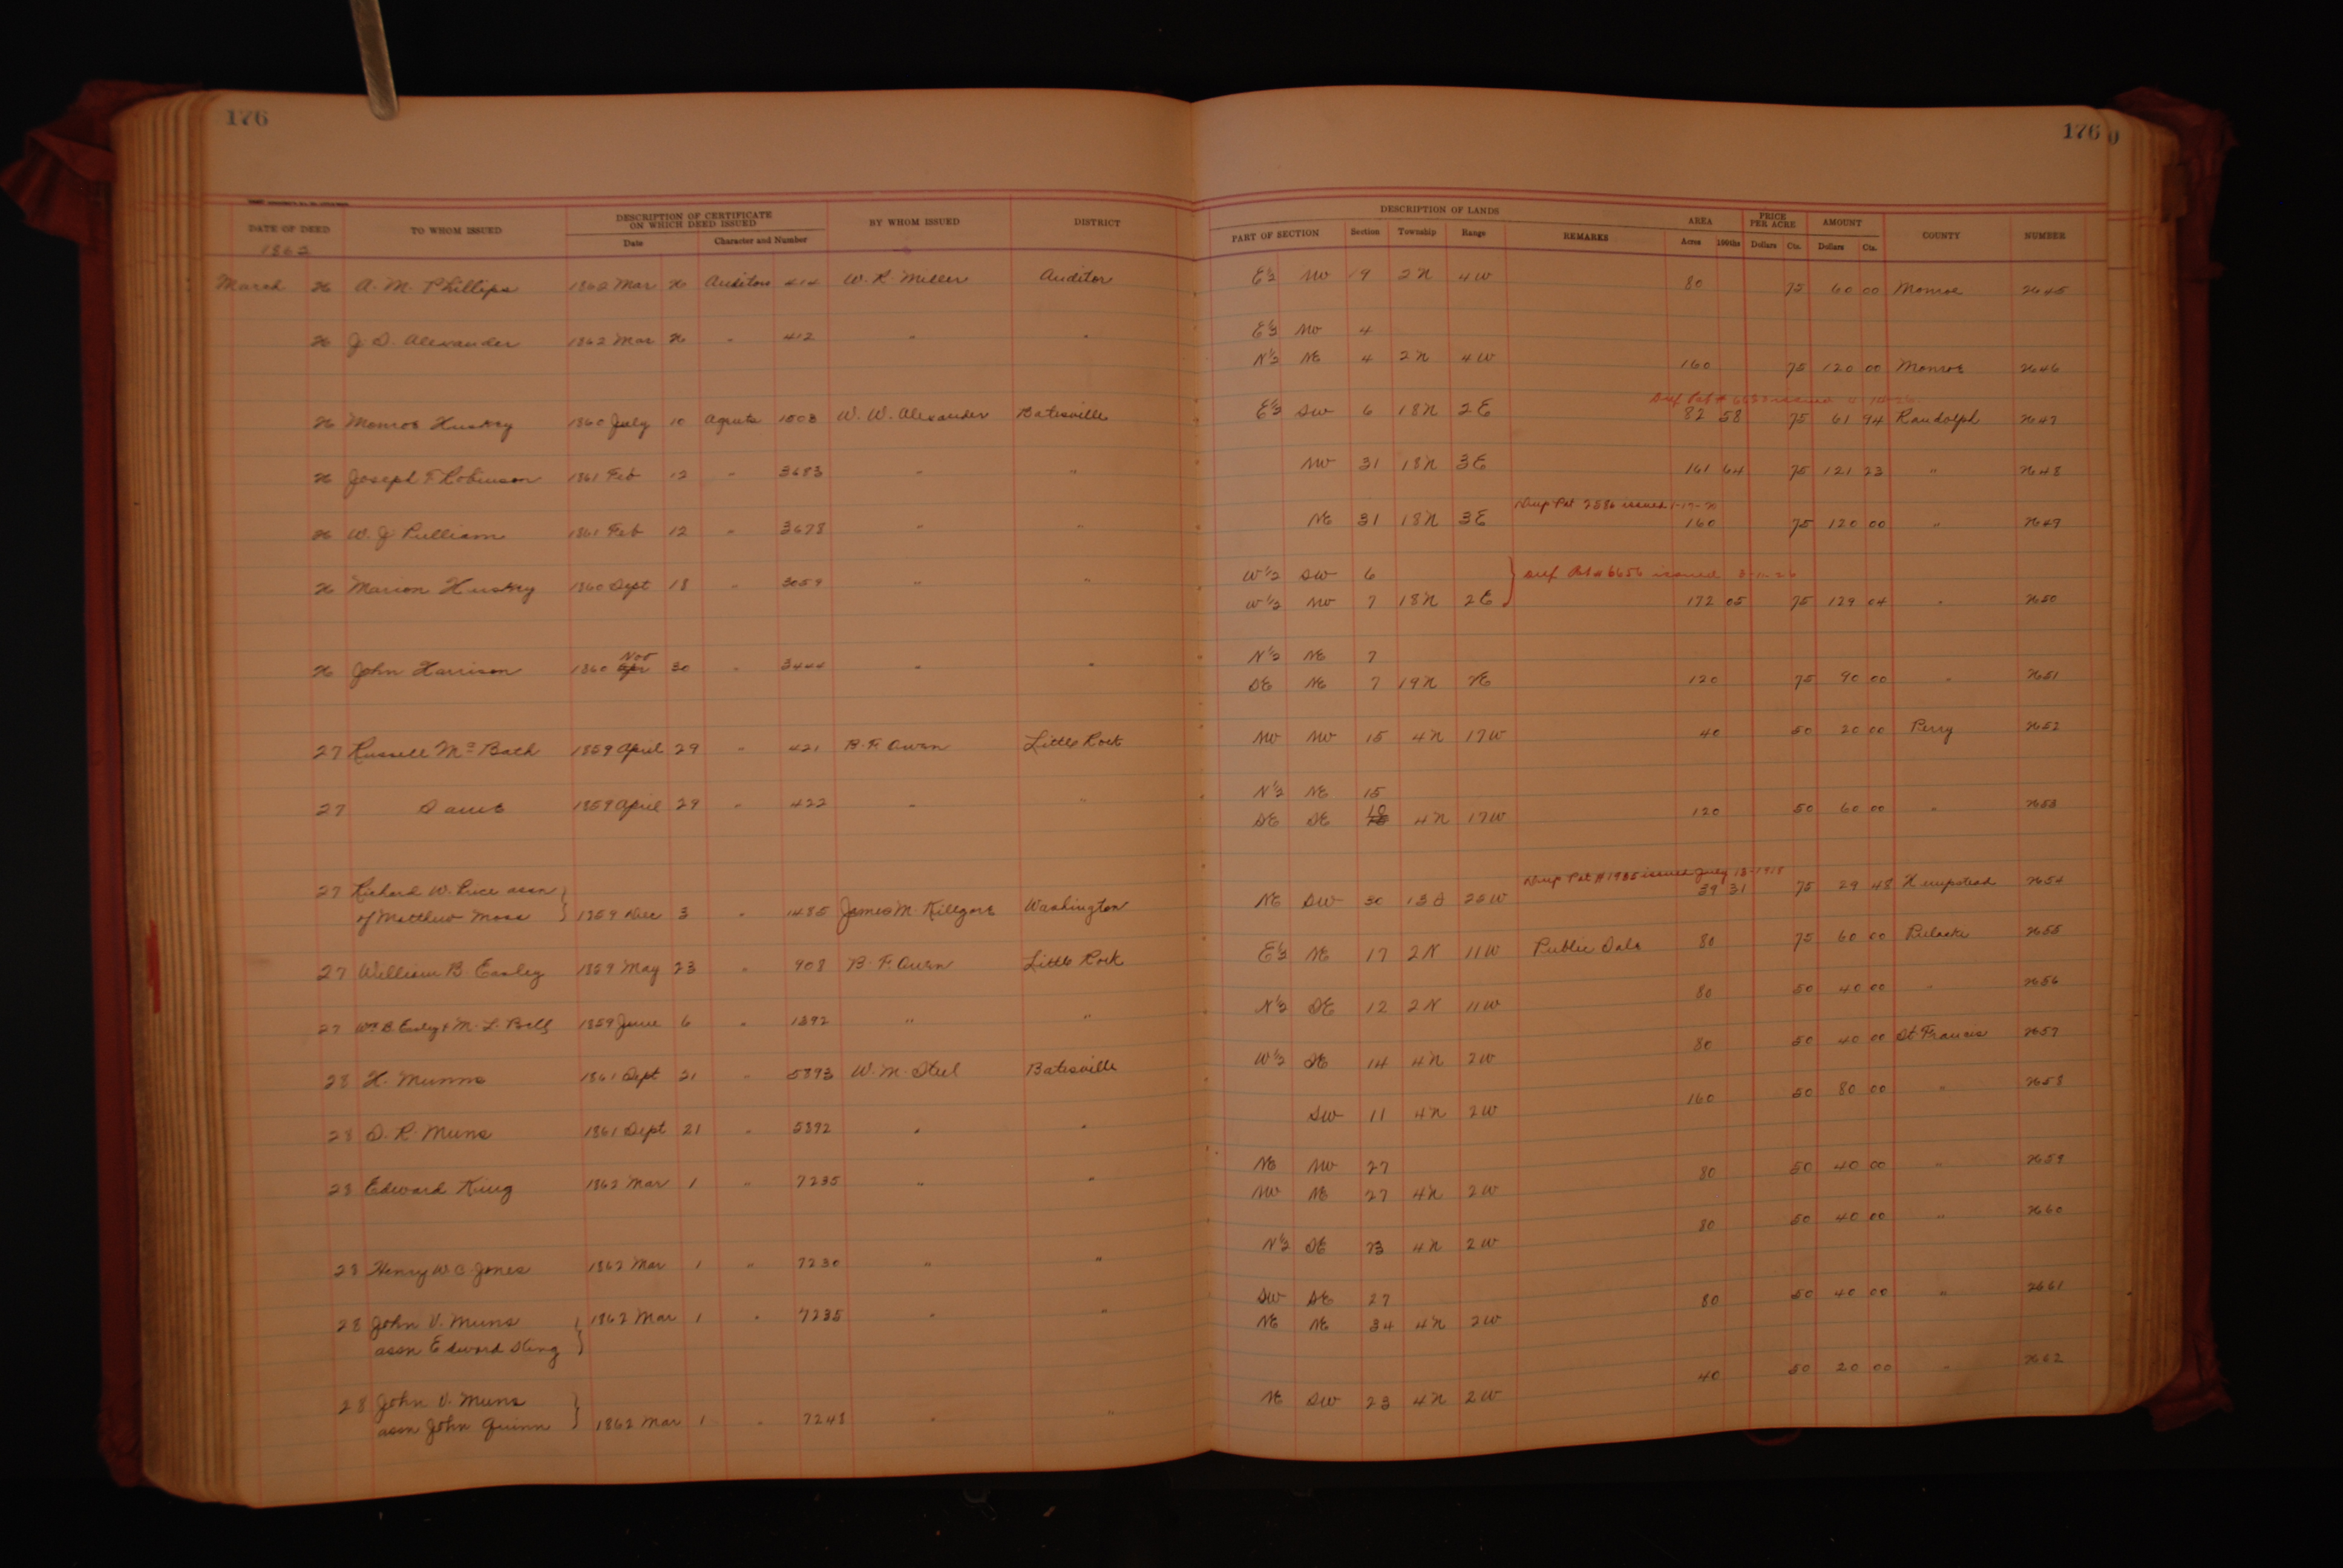 176
176
DATE OF DEED TO WHOM ISSUED DESCRIPTION OF CERTIFICATE ON WHICH DEED ISSUED Date Character and Number BY WHOM ISSUED DISTRICT DESCRIPTION OF LANDS PART OF SECTION Section Township Range REMARKS AREA Acres 100ths PRICE PER ACRE Dollars Cts. AMOUNT Dollars Cts. COUNTY NUMBER
1862
March 26 A. M. Phillips 1862 Mar 26 Auditors 414 W. R Miller Auditor E½ NW 19 2N 4W 80 75 60 00 Monroe 2645
26 J. D. Alexander 1862 Mar 26 " 412 " " E½ NW 4
N½ NE 4 2N 4W 160 75 120 00 Monroe 2646
26 Monroe Huskey 1860 July 10 Agents 1503 W. W. Alexander Batesville E½ SW 6 18N 2E 82 58 75 61 94 Randolph 2647
26 Joseph F Robinson 1861 Feb 12 " 3683 " " NW 31 18N 3E 161 64 75 121 23 " 2648
Dup Pat 2586 issued
26 W. J. Pulliam 1861 Feb 12 " 3678 " " NE 31 18N 3E 160 75 120 00 " 2649
26 Marion Huskey 1860 Sept 18 " 3059 " " W½ SW 6 Dup Pat # 6656 issued
W½ NW 7 18N 2E 172 05 75 129 04 " 2650
Nov
26 John Harrison 1860 Apr 30 " 3444 " " N½ NE 7
SE NE 7 19N 2E 120 75 90 00 " 2651
27 Russell McBath 1859 April 29 " 421 B. F. Owen Little Rock NW NW 15 4N 17W 40 50 20 00 Perry 2652
27 Same 1859 April 29 " 422 " " N½ NE 15
SE SE 10 4N 17W 120 50 60 00 " 2653
Dup Pat # 1985 issued July 13-1918
27 Richard W. Price assn
of Matthew Moss 1859 Dec 3 " 1485 James M. Killgore Washington NE SW 30 13S 25W 39 31 75 29 48 Hempstead 2654
27 William B. Easley 1859 May 23 " 908 B. F. Owen Little Rock E½ NE 17 2N 11W Public Sale 80 75 60 00 Pulaski 2655
27 Wm B. Easley & M. L. Bell 1859 June 6 " 1392 " " N½ SE 12 2N 11W 80 50 40 00 " 2656
28 H. Munns 1861 Sept 21 " 5893 W. M. Steel Batesville W½ SE 14 4N 2W 80 50 40 00 St Francis 2657
28 D. R. Muns 1861 Sept 21 " 5892 " " SW 11 4N 2W 160 50 80 00 " 2658
28 Edward King 1862 Mar 1 " 7235 " " NE NW 27
NW NE 27 4N 2W 80 50 40 00 " 2659
28 Henry W C Jones 1862 Mar 1 " 7230 " " N½ SE 23 4N 2W 80 50 40 00 " 2660
28 John V. Muns 1862 Mar 1 " 7235 " " SW SE 27
assn Edward King NE NE 34 4N 2W 80 50 40 00 " 2661
28 John V. Muns
assn John Quinn 1862 Mar 1 " 7248 " " NE SW 23 4N 2W 40 50 20 00 " 2662